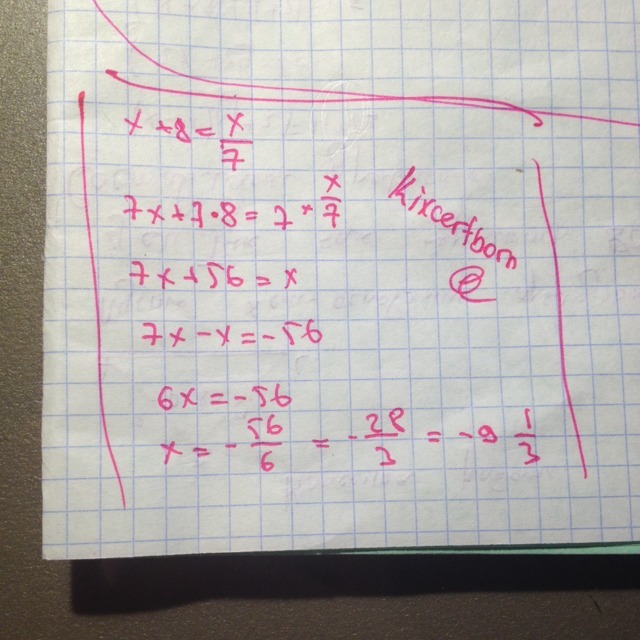 x + 8 = x/7
7x + 7 · 8 = 7 * x/7
7x + 56 = x
7x - x = -56
6x = -56
x = - 56/6 = - 28/3 = -9 1/3
kixcertborn
@